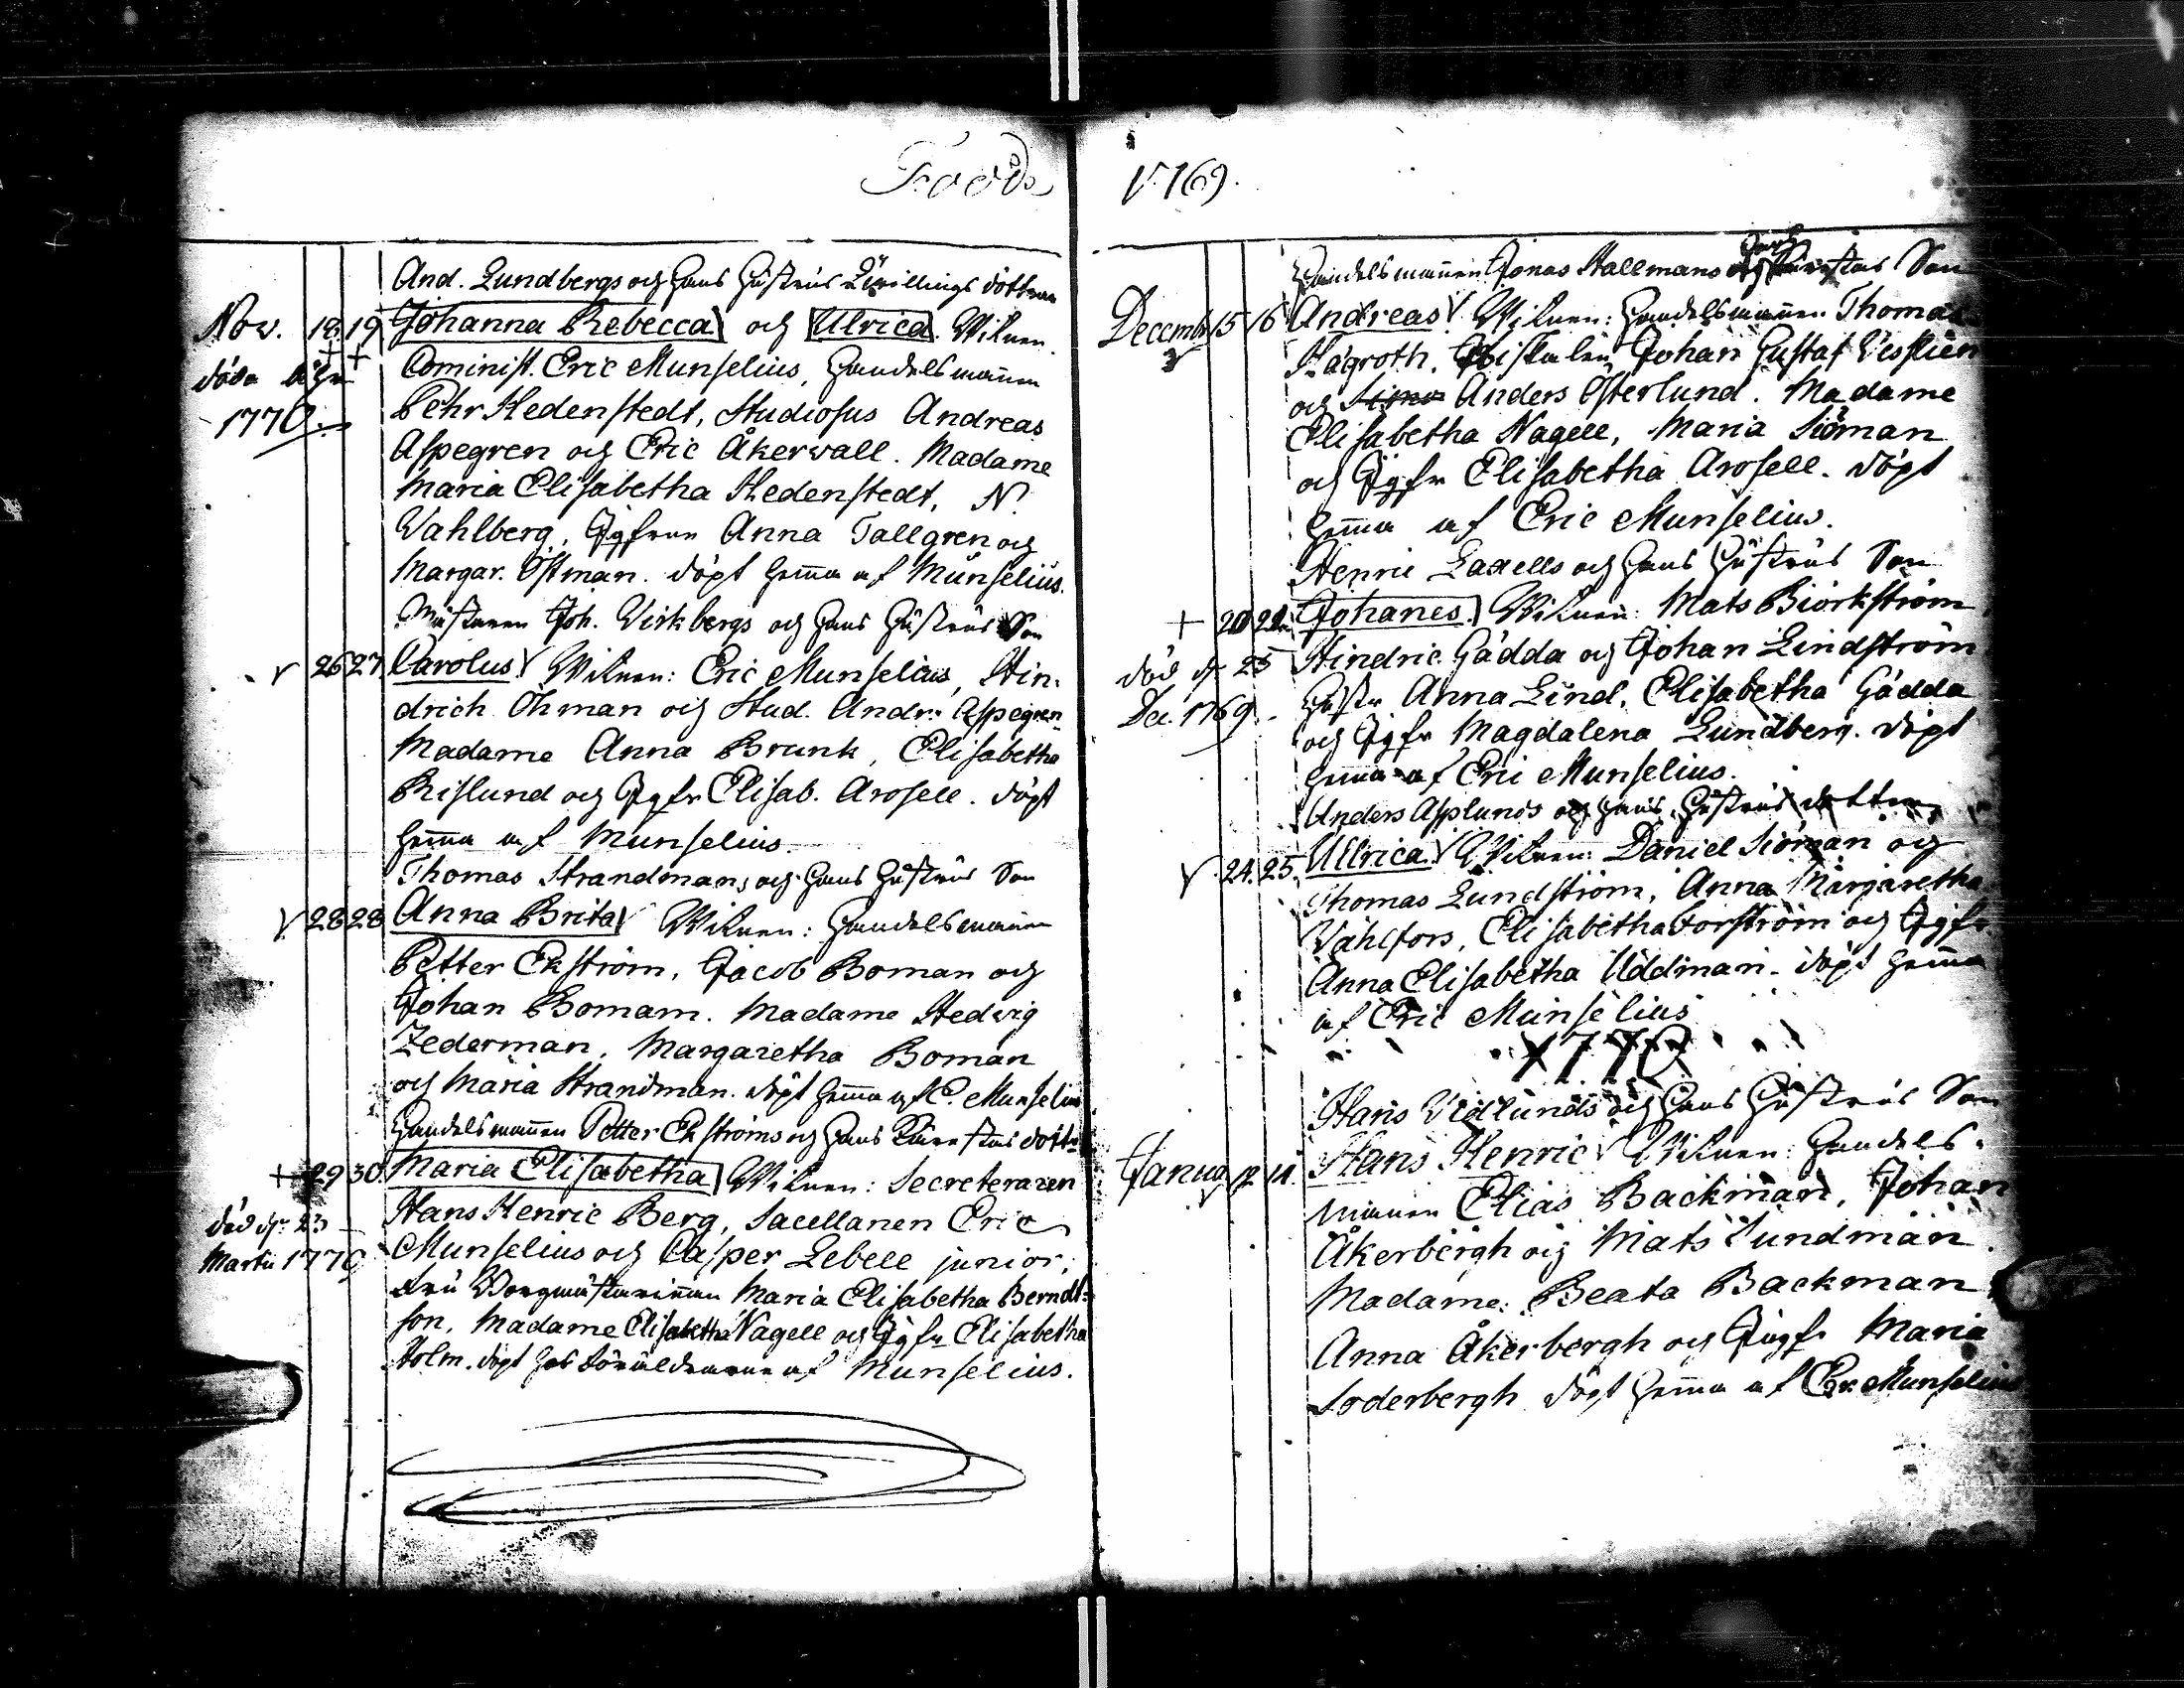 Födde
And. Lundbergs och hans hustrus Twillings döttrar
Nov. 18. 19 Johanna Rebecca och Ulrica. Witnen
döda
1770. Cominist. Eric Munselius, handelsmannen
Pehr Hedenstedt, Studiosus Andreas
Aspegren och Eric Åkerwall. Madame
Maria Elisabetha Hedenstedt, N.
Wahlberg, Jgfrur Anna Tallgren och
Margar. Östman. döpt hema af Munselius.
Mästaren Joh. Wirkbergs och hans hustrus Son
26 27 Carolus Witnen: Eric Munselius, Hin-
drich Öhman och Stud. Andr: Aspegren
Madame Anna Brunk, Elisabetha
Rislund och Jgfr Elisab. Arosell. döpt
hema af Munselius.
Thomas Strandmans och hans hustrus Son
28 28 Anna Brita Witnen: handelsmannen
Petter Ekström, Jacob Boman och
Johan Bomam. Madame Hedvig
Zederman, Margaretha Boman
och Maria Strandman. döpt hema af E. Munselius
Handelsmannen Petter Ekströms och hans Kärestas dotter
+ 29 30. Maria Elisabetha Witnen: Secreteraren
död d. 23 Hans Henric Berg, Sacellanen Eric
Martii 1770 Munselius och Casper Lebell junior,
Fru Borgmästarinnan Maria Elisabetha Berndt-
son, Madame Elisabetha Nagell och Jgfr Elisabetha
Holm. döpt hos föräldrarne af Munselius.
1769.
Handelsmannen Jonas Hallmans Kärestas Son
Decemb 15 16 Andreas Witnen: Handelsmannen Thomas
Hagroth, Fiskalen Johan Gustaf
och Anders Österlund. Madame
Elisabetha Nagell, Maria Siöman
och Jgfr Elisabetha Arosell. döpt
hema af Eric Munselius.
Henric Laxells och hans hustrus Son
+ 20 21 Johanes Witnen: Mats Biörkström,
död d. 25 Hindric Gädda och Johan Lindström
Dec. 1769. Hustr Anna Lind, Elisabetha Gädda
och Jgfr Magdalena Lundberg. döpt
hema af Eric Munselius.
Anders Asplunds och hans hustrus dotter
24. 25. Ullrica Witnen: Daniel Siöman och
Thomas Lundström, Anna Margaretha
Wahlfors, Elisabetha Forström och Jgfr.
Anna Elisabetha Uddman. döpt hema
af Eric Munselius
1770
Hans Widlunds och hans hustrus Son
Janua 12 14. Hans Henric Witnen: Handels-
mannen Elias Backman, Johan
Åkerbergh och Mats Sundman.
Madame: Beata Backman
Anna Åkerbergh och Jugfr Maria
Soderbergh döpt hema af Er. Munselius